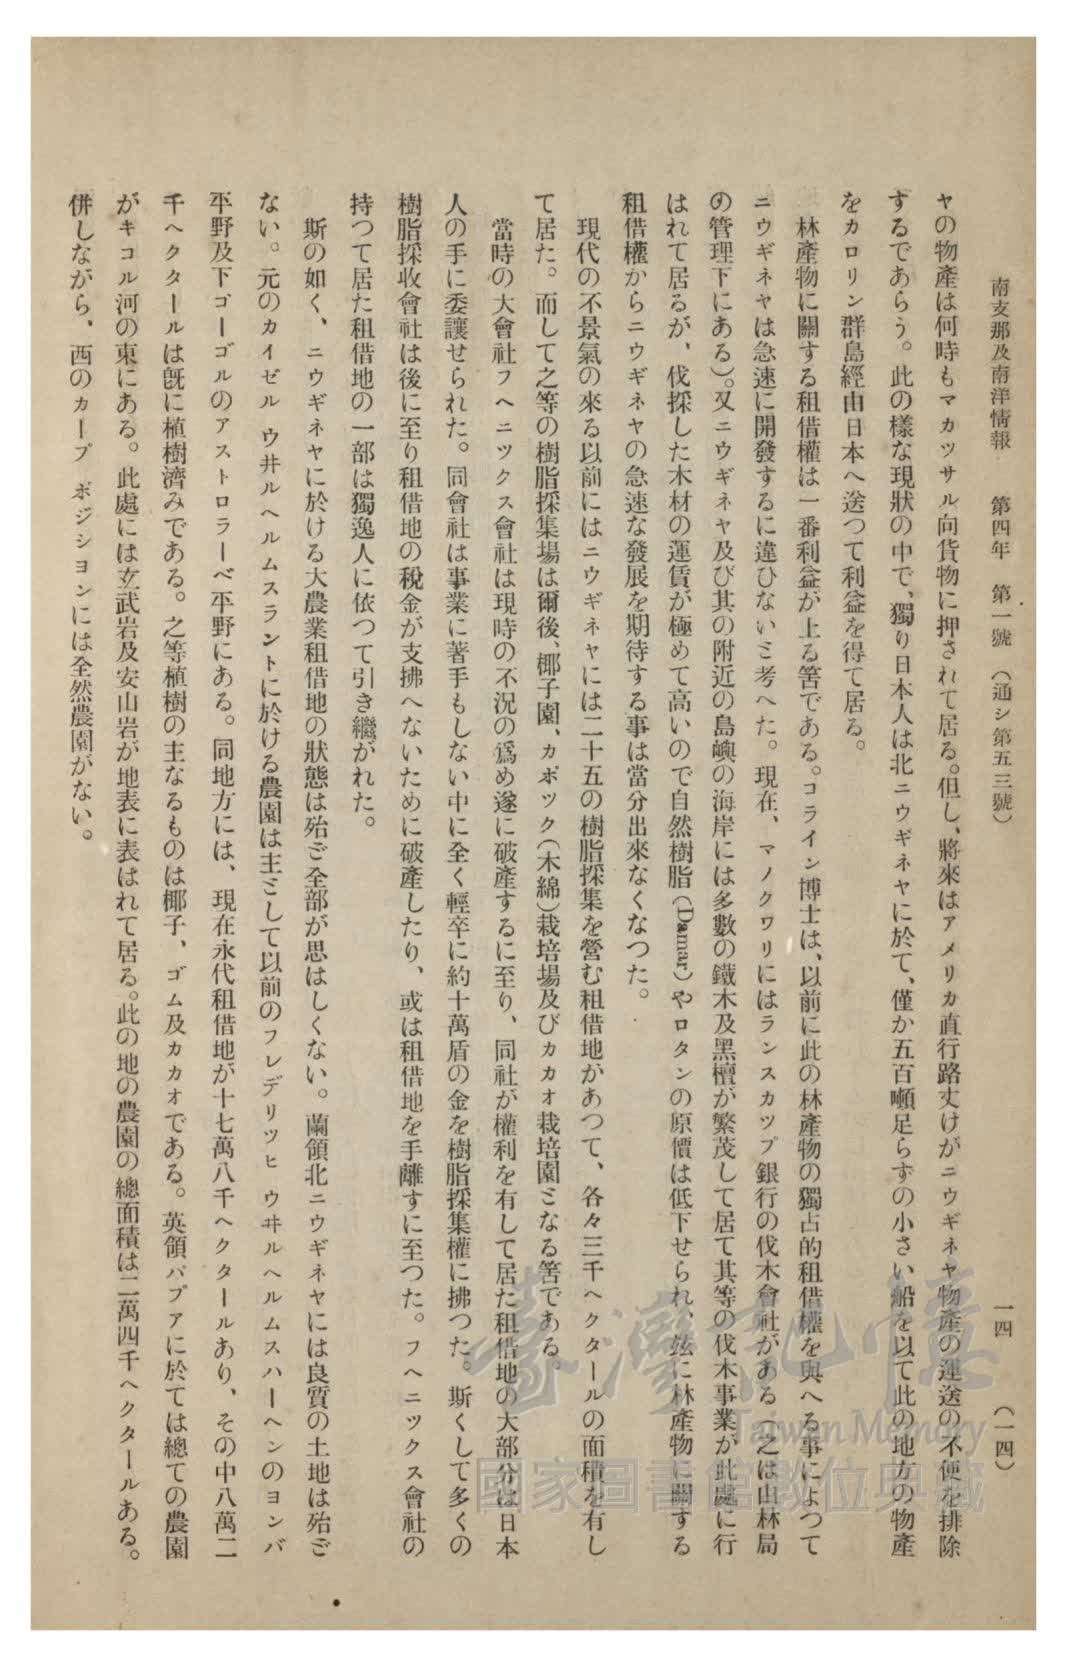 南支那及南洋情報　第四年　第一號　（通シ第五三號）　一四　（一四）
ヤの物產は何時もマカツサル向貨物に押されて居る。但し、將來はアメリカ直行路丈けがニウギネヤ物產の運送の不便を排除
するであらう。此の樣な現狀の中で、獨り日本人は北ニウギネヤに於て、僅か五百噸足らずの小さい船を以て此の地方の物產
をカロリン群島經由日本へ送つて利益を得て居る。
林產物に關する租借權は一番利益が上る筈である。コライン博士は、以前に此の林產物の獨占的租借權を與へる事によつて
ニウギネヤは急速に開發するに違ひないと考へた。現在、マノクワリにはランスカツプ銀行の伐木會社がある（之は山林局
の管理下にある）。又ニウギネヤ及び其の附近の島嶼の海岸には多數の鐵木及黑檀が繁茂して居て其等の伐木事業が此處に行
はれて居るが、伐採した木材の運賃が極めて高いので自然樹脂（Damar）やロタンの原價は低下せられ、玆に林產物に關する
租借權からニウギネヤの急速な發展を期待する事は當分出來なくなつた。
現代の不景氣の來る以前にはニウギネヤには二十五の樹脂採集を營む租借地があつて、各々三千ヘクタールの面積を有し
て居た。而して之等の樹脂採集場は爾後、椰子園、カポツク（木綿）栽培場及びカカオ栽培園となる筈である。
當時の大會社フヘニツクス會社は現時の不況の爲め遂に破產するに至り、同社が權利を有して居た租借地の大部分は日本
人の手に委讓せられた。同會社は事業に著手もしない中に全く輕卒に約十萬盾の金を樹脂採集權に拂つた。斯くして多くの
樹脂採收會社は後に至り租借地の稅金が支拂へないために破產したり、或は租借地を手離すに至つた。フヘニツクス會社の
持つて居た租借地の一部は獨逸人に依つて引き繼がれた。
斯の如く、ニウギネヤに於ける大農業租借地の狀態は殆ご全部が思はしくない。蘭領北ニウギネヤには良質の土地は殆ご
ない。元のカイゼル ウ井ルヘルムスラントに於ける農園は主として以前のフレデリツヒ ウヰルヘルムスハーヘンのヨンバ
平野及下ゴーゴルのアストロラーベ平野にある。同地方には、現在永代租借地が十七萬八千ヘクタールあり、その中八萬二
千ヘクタールは旣に植樹濟みである。之等植樹の主なるものは椰子、ゴム及カカオである。英領パプアに於ては總ての農園
がキコル河の東にある。此處には玄武岩及安山岩が地表に表はれて居る。此の地の農園の總面積は二萬四千ヘクタールある。
併しながら、西のカープ ポジシヨンには全然農園がない。
臺灣記憶
Taiwan Memory
國家圖書館數位典藏